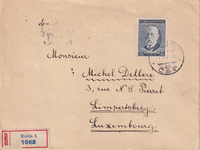 Monsieur
Michel Dellere
3, rue N.S. Pierret
Limpertsberg
Luxembourg.
R
Kolín 1.
1068